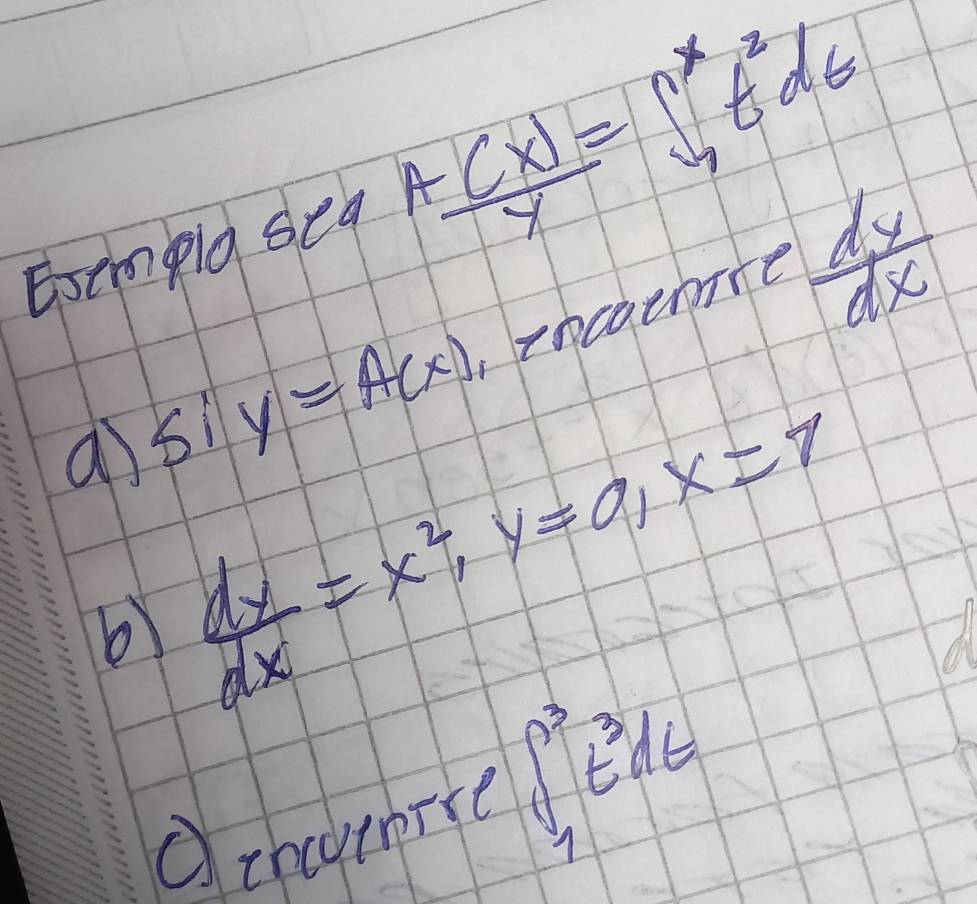 Ejemplo sea A(x)/y = ∫₁ˣ t² dt
a) si y = A(x), encuentre dy/dx
b) dy/dx = x², y = 0, x = 1
c) encuentre ∫₁³ t³ dt